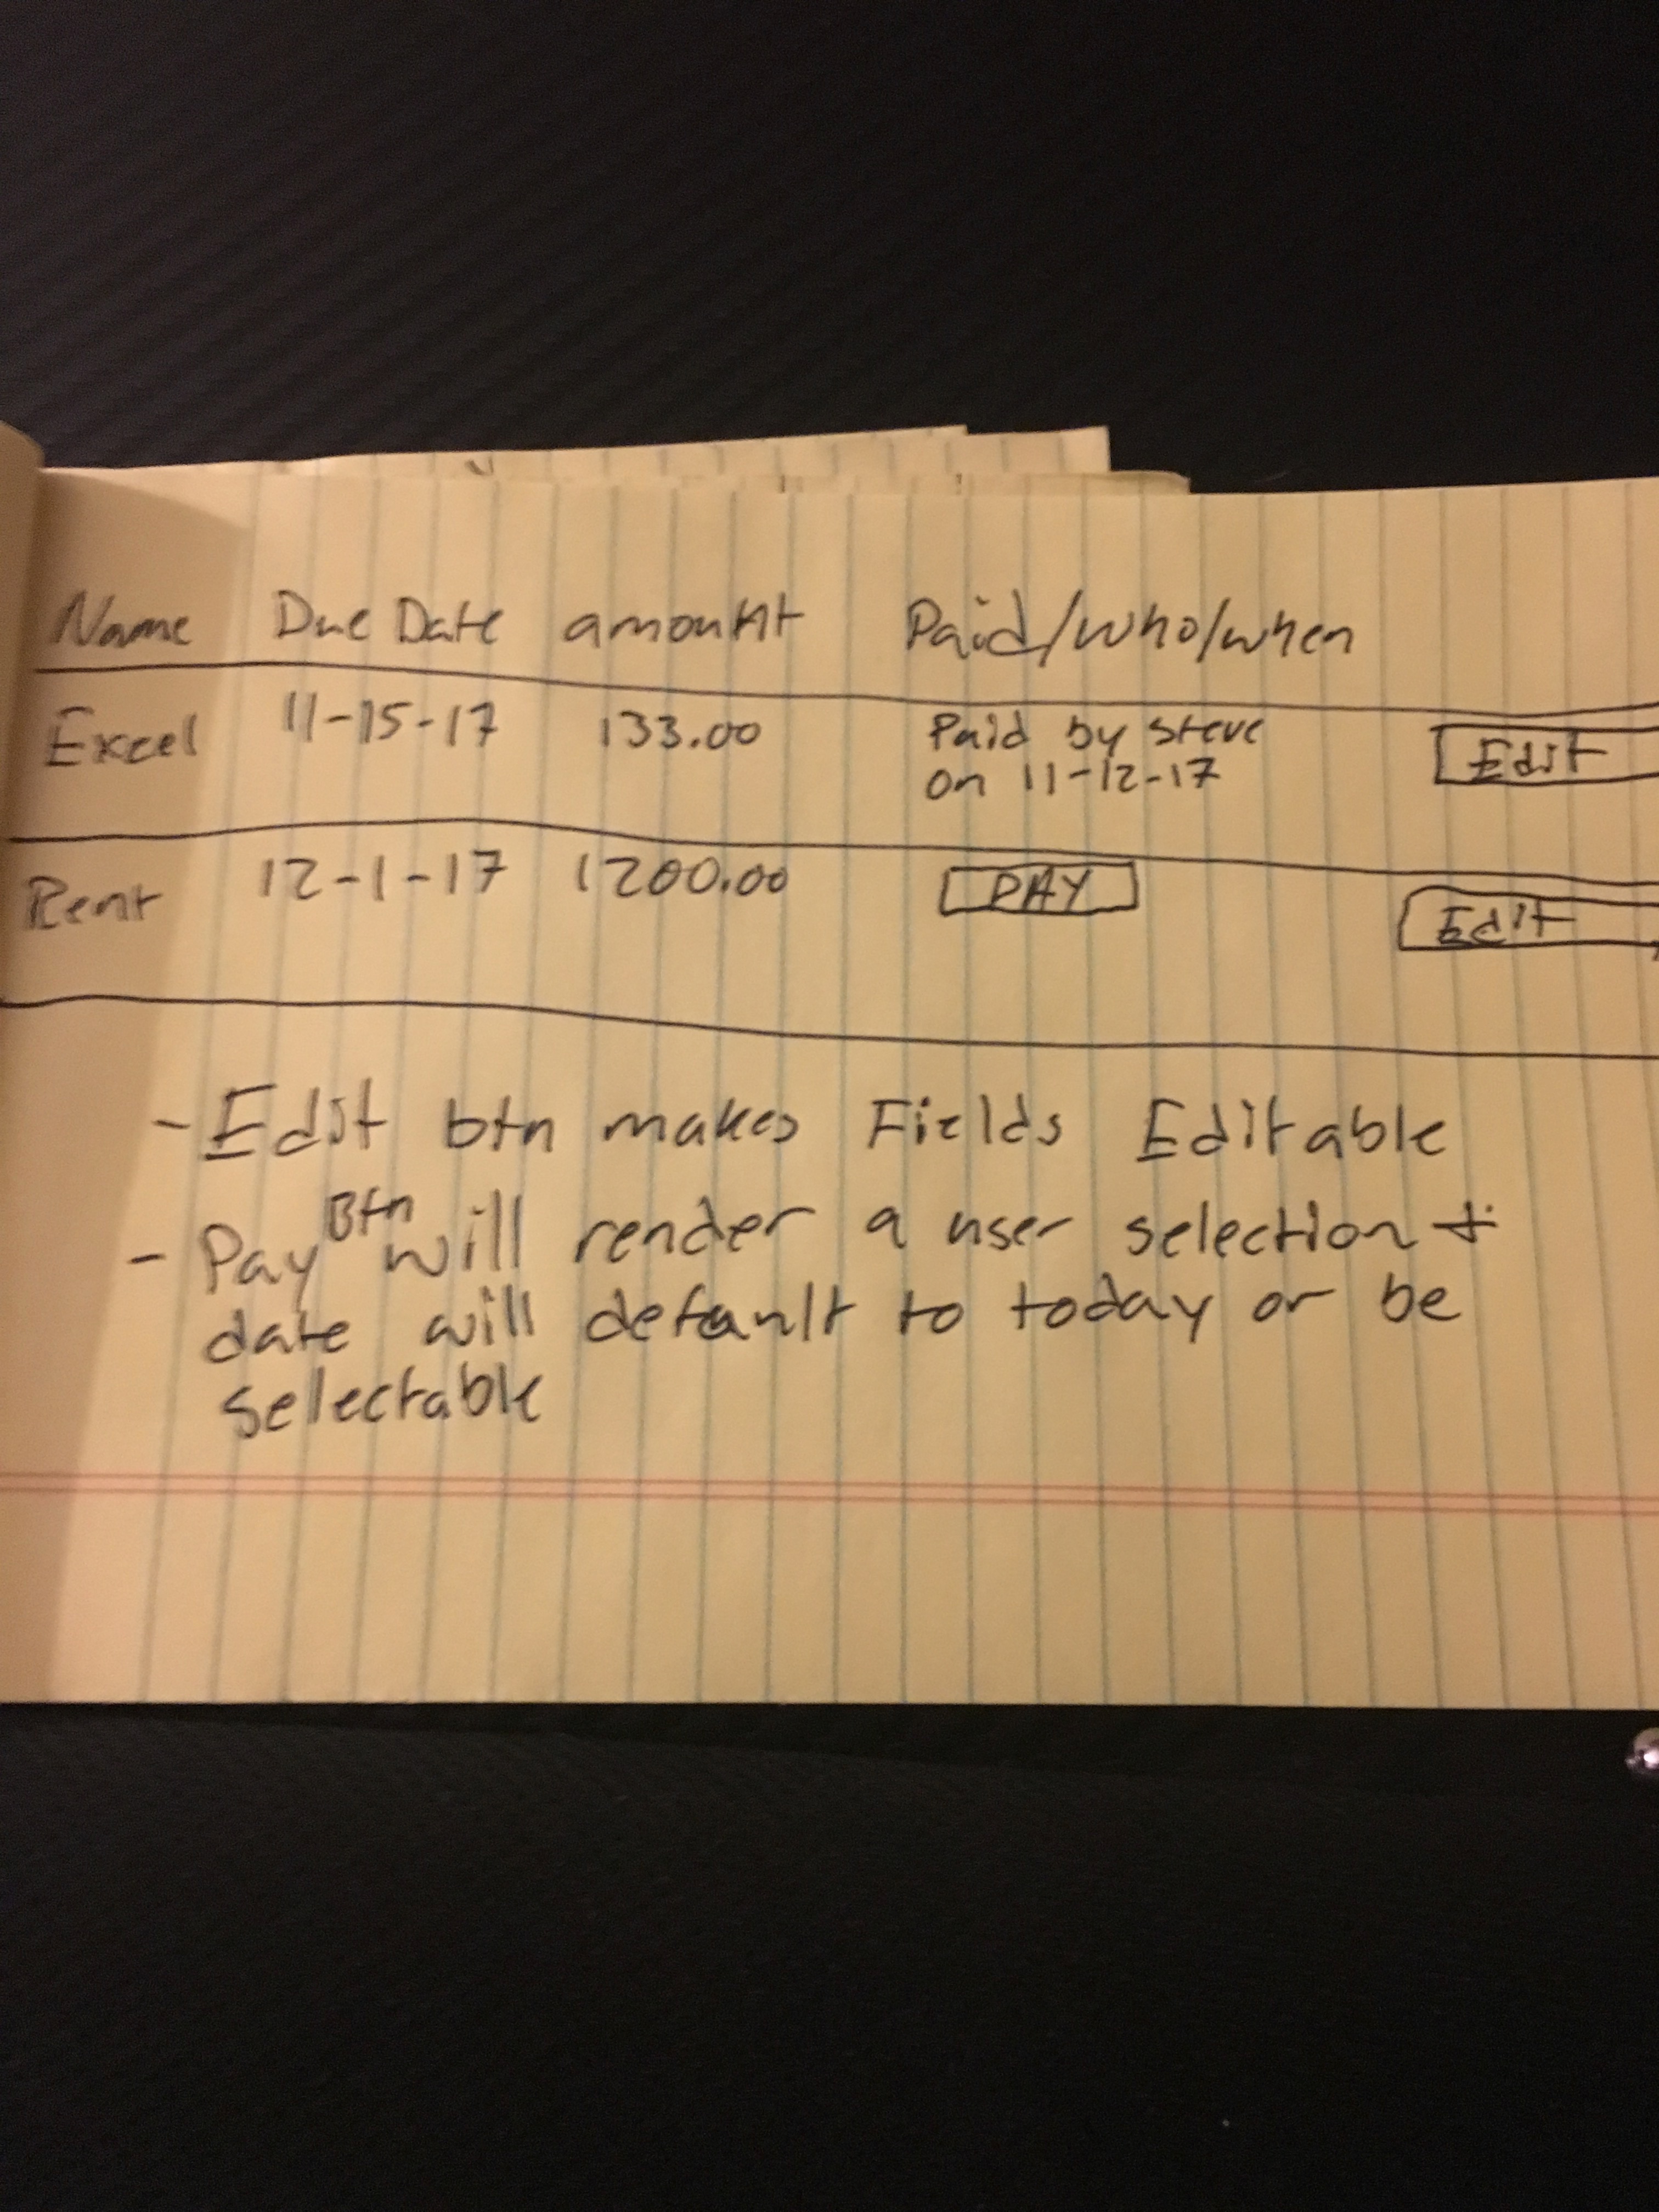 Name Due Date amount Paid/who/when
Excel 11-15-17 133.00 Paid by Steve
on 11-12-17 Edit
Rent 12-1-17 1200.00 PAY Edit
- Edit btn makes Fields Editable
- Pay Btn will render a user selection +
date will default to today or be
selectable